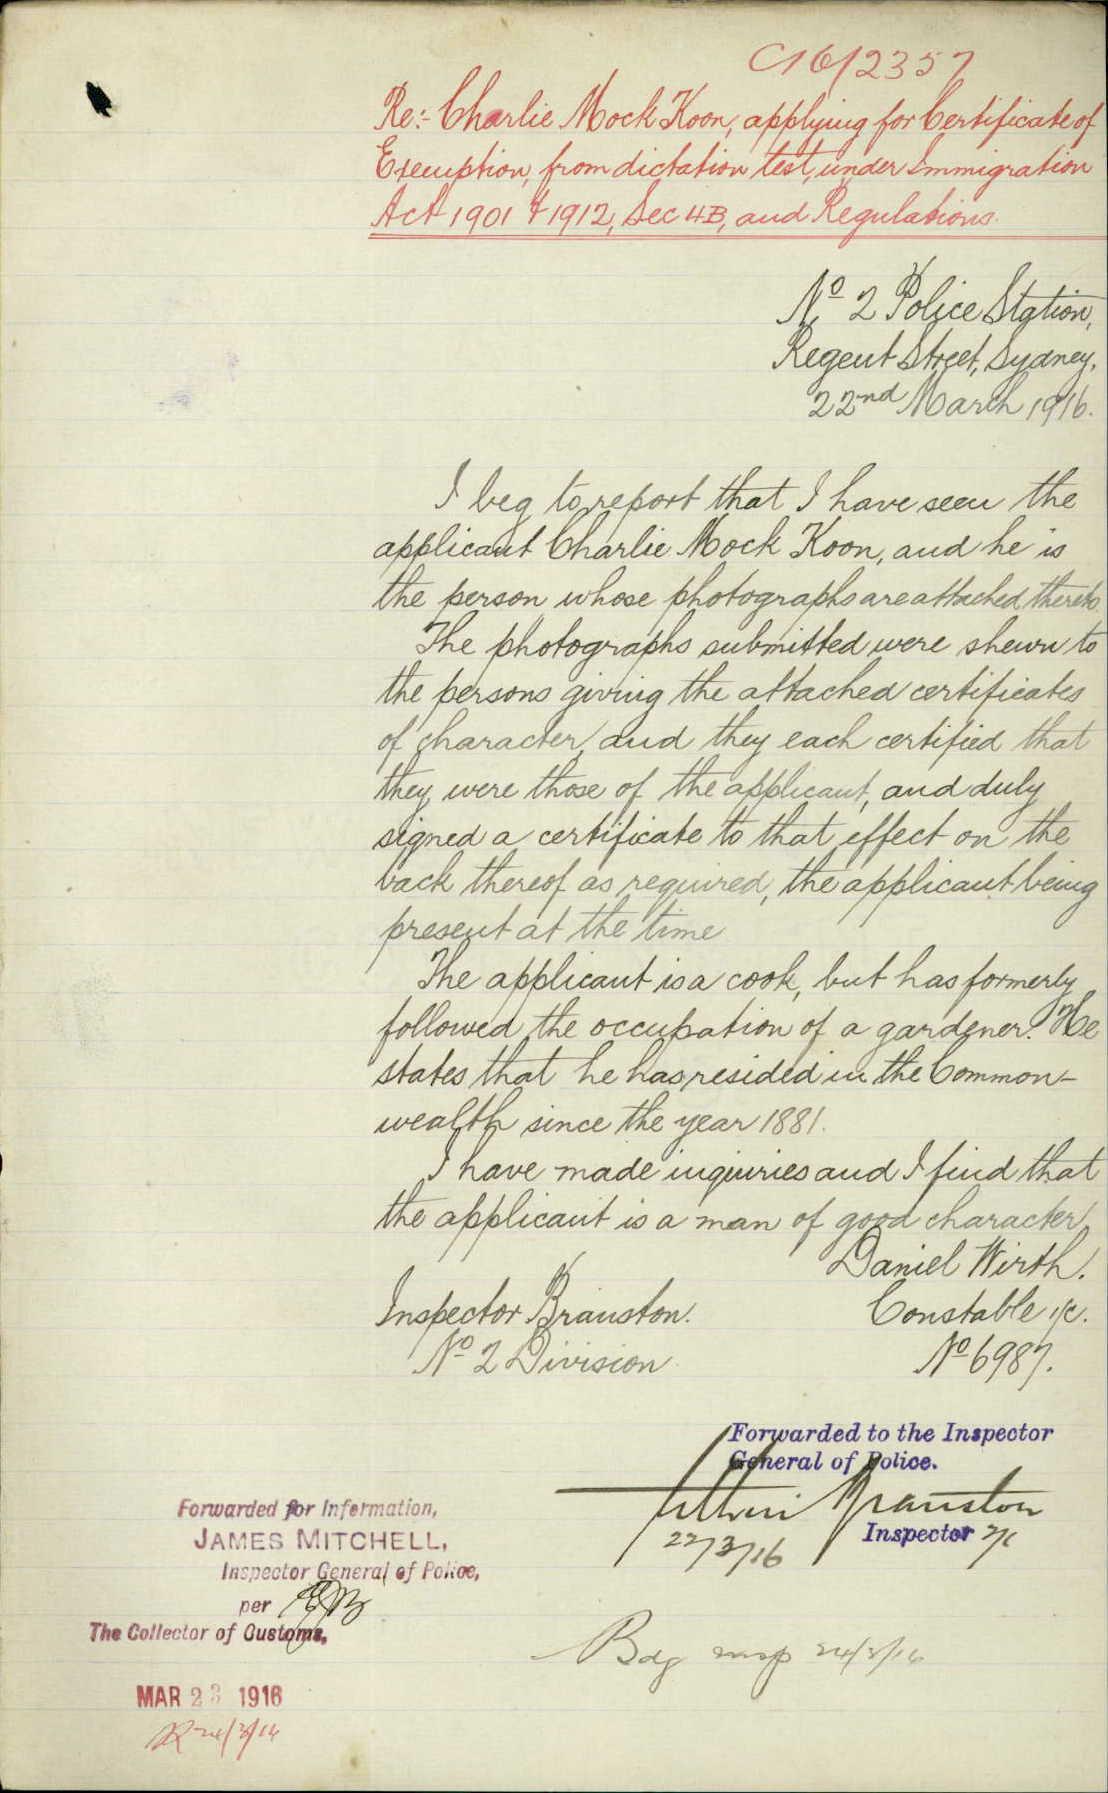 C16/2357
Re:- Charlie Mock Koon, applying for Certificate of
Exemption, from dictation test, under Immigration
Act 1901 & 1912, Sec 4B, and Regulations.
No 2 Police Station,
Regent Street, Sydney,
22nd March 1916.
I beg to report that I have seen the
applicant Charlie Mock Koon, and he is
the person whose photographs are attached thereto.
The photographs submitted were shewn to
the persons giving the attached certificates
of character, and they each certified that
they were those of the applicant, and duly
signed a certificate to that effect on the
back thereof as required, the applicant being
present at the time
The applicant is a cook, but has formerly
followed the occupation of a gardener. He
states that he has resided in the Common-
wealth since the year 1881.
I have made inquiries and I find that
the applicant is a man of good character.
Daniel Wirth.
Inspector Branston. Constable 1/c.
No 2 Division No 6987.
Forwarded to the Inspector
General of Police.
Branston
22/3/16 Inspector
Forwarded for Information,
JAMES MITCHELL,
Inspector General of Police,
per
The Collector of Customs,
24/3/16
MAR 23 1916
24/3/16